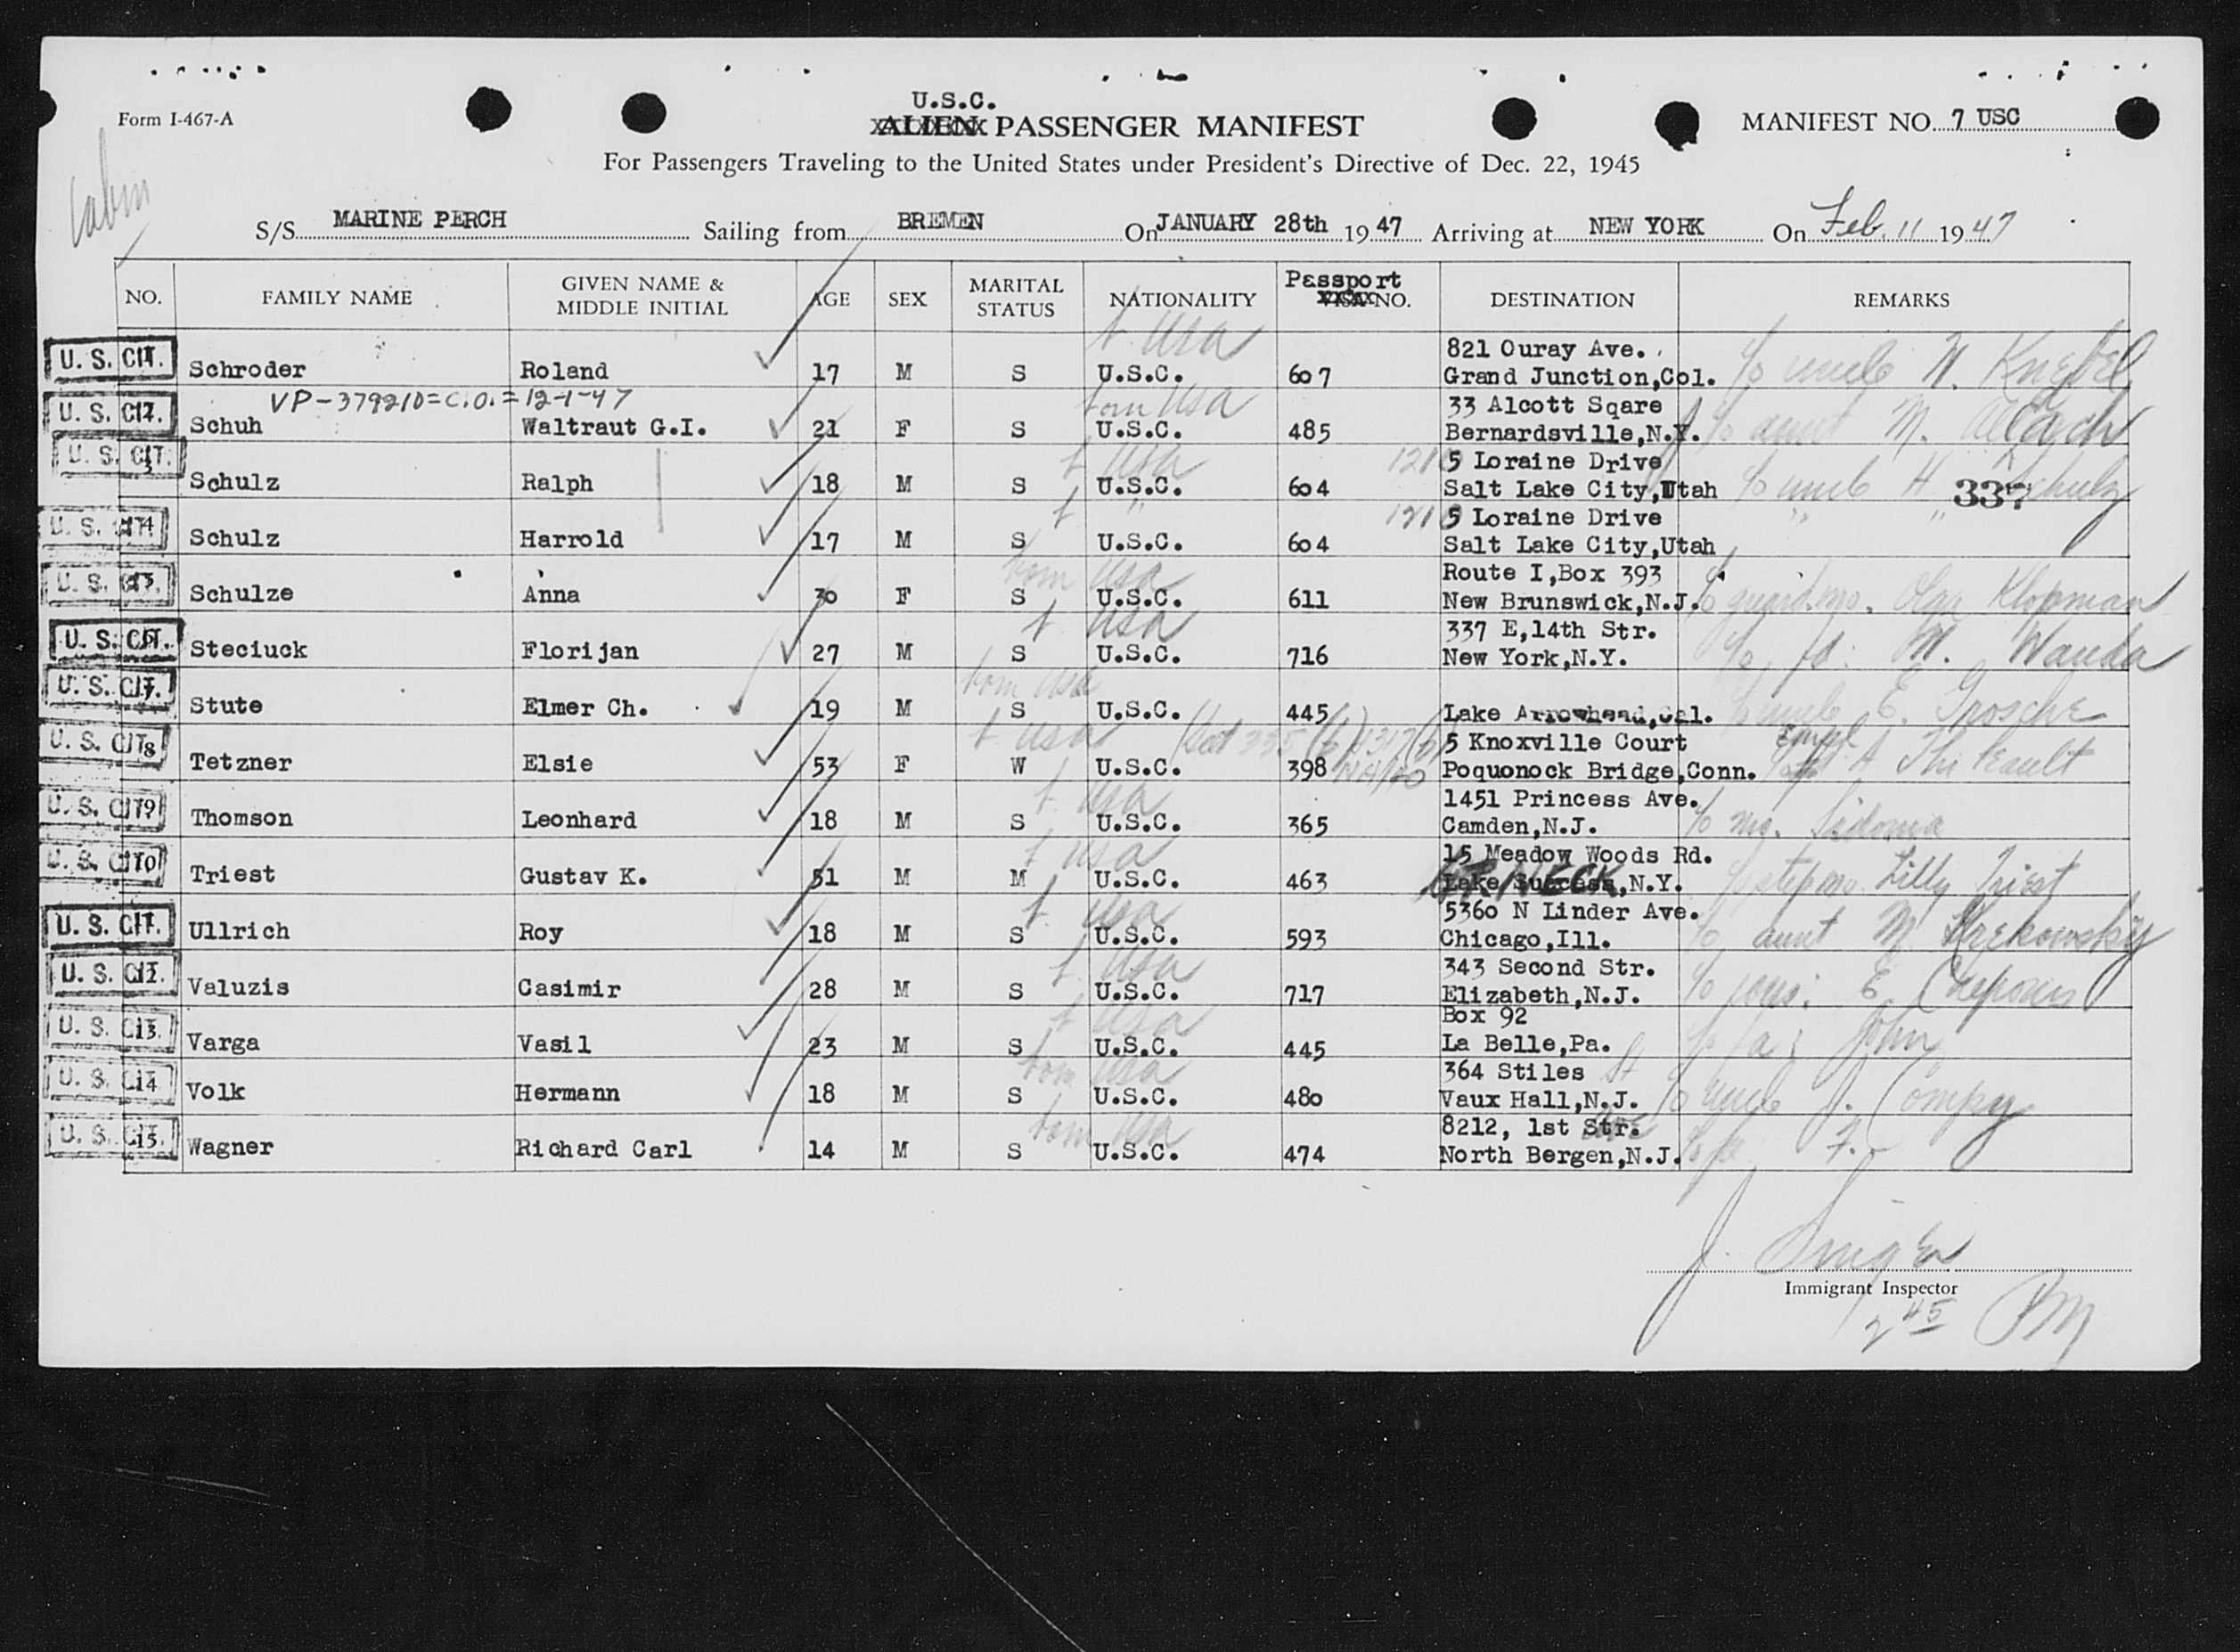 U.S.C.
Form I-467-A
ALIEN PASSENGER MANIFEST
MANIFEST NO. 7 USC
For Passengers Traveling to the United States under President's Directive of Dec. 22, 1945
Cabin
S/S MARINE PERCH Sailing from BREMEN On JANUARY 28th 1947 Arriving at NEW YORK On Feb. 11 1947
NO. FAMILY NAME GIVEN NAME & MIDDLE INITIAL AGE SEX MARITAL STATUS NATIONALITY Passport VISA NO. DESTINATION REMARKS
USA
821 Ouray Ave.
U. S. CIT. 1 Schroder Roland 17 M S U.S.C. 607 Grand Junction,Col. c/o uncle W. Knebel
VP-379210=C.O.=12-1-47 born USA 33 Alcott Sqare
U. S. CIT. 2 Schuh Waltraut G.I. 21 F S U.S.C. 485 Bernardsville,N.Y. c/o aunt M.
USA 1210 5 Loraine Drive
U. S. CIT. 3 Schulz Ralph 18 M S U.S.C. 604 Salt Lake City,Utah c/o uncle H Schulz 337
" 1210 5 Loraine Drive " "
U. S. CIT. 4 Schulz Harrold 17 M S U.S.C. 604 Salt Lake City,Utah
born USA Route I,Box 393
U. S. CIT. 5 Schulze Anna 30 F S U.S.C. 611 New Brunswick,N.J. c/o guard. mo. Olga Klopman
USA 337 E,14th Str.
U. S. CIT. 6 Steciuck Florijan 27 M S U.S.C. 716 New York,N.Y. c/o M. Wanda
born USA
U. S. CIT. 7 Stute Elmer Ch. 19 M S U.S.C. 445 Lake Arrowhead,Cal. c/o uncle E. Grosche
USA 5 Knoxville Court
U. S. CIT. 8 Tetzner Elsie 53 F W U.S.C. 398 Poquonock Bridge,Conn. A
USA 1451 Princess Ave.
U. S. CIT. 9 Thomson Leonhard 18 M S U.S.C. 365 Camden,N.J. c/o mo. Sidonia
USA 15 Meadow Woods Rd.
U. S. CIT. 10 Triest Gustav K. 51 M M U.S.C. 463 Lake Success,N.Y. GR. NECK c/o step mo. Lilly Triest
USA 5360 N Linder Ave.
U. S. CIT. 11 Ullrich Roy 18 M S U.S.C. 593 Chicago,Ill. c/o aunt M.
USA 343 Second Str.
U. S. CIT. 12 Valuzis Casimir 28 M S U.S.C. 717 Elizabeth,N.J. c/o cous. E.
USA Box 92
U. S. CIT. 13 Varga Vasil 23 M S U.S.C. 445 La Belle,Pa. c/o fa. John
born USA 364 Stiles St
U. S. CIT. 14 Volk Hermann 18 M S U.S.C. 480 Vaux Hall,N.J. c/o uncle J. Compy
born USA 8212, 1st Str. Ave
U. S. CIT. 15 Wagner Richard Carl 14 M S U.S.C. 474 North Bergen,N.J. c/o fa F.
J. Singer
Immigrant Inspector
2 45 PM